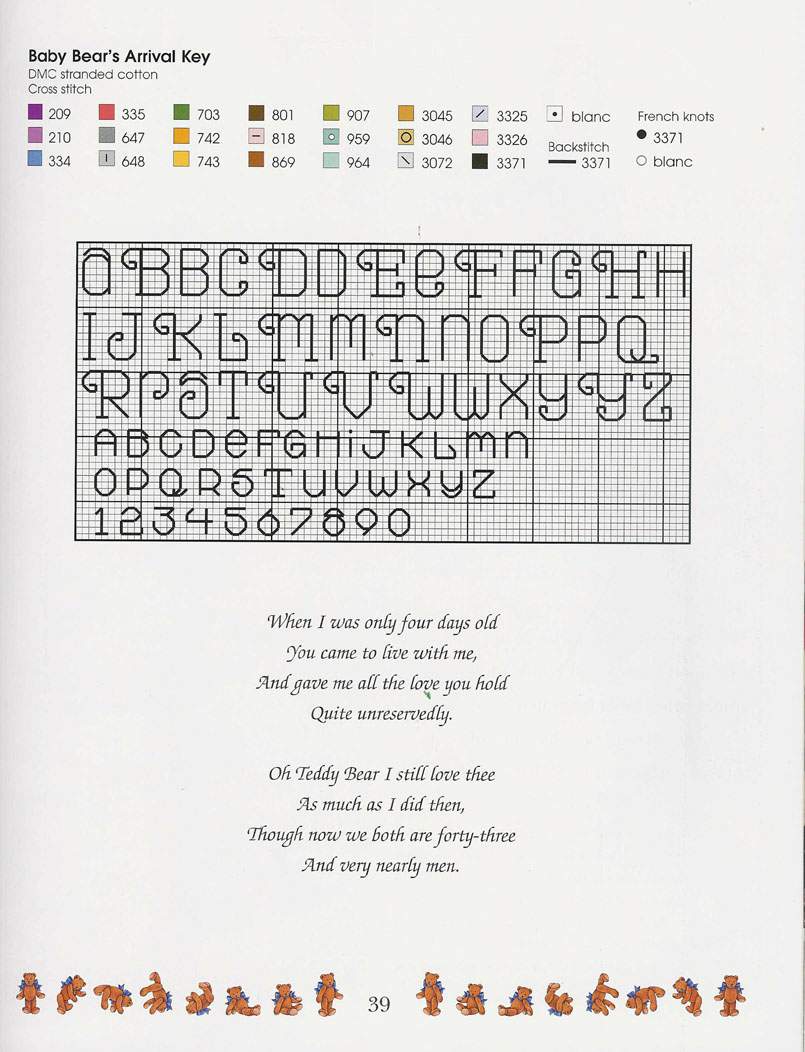 Baby Bear's Arrival Key
DMC stranded cotton
Cross stitch
209 335 703 801 907 3045 3325 blanc French knots
210 647 742 818 959 3046 3326 Backstitch 3371
334 648 743 869 964 3072 3371 3371 blanc
a B B C D D E e F F G H H
I J K L M M N N O P P Q
R R S T U V W W X Y Y Z
A B C D e F G H i J K L m n
O P Q R S T U V W X Y Z
1 2 3 4 5 6 7 8 9 0
When I was only four days old
You came to live with me,
And gave me all the love you hold
Quite unreservedly.
Oh Teddy Bear I still love thee
As much as I did then,
Though now we both are forty-three
And very nearly men.
39